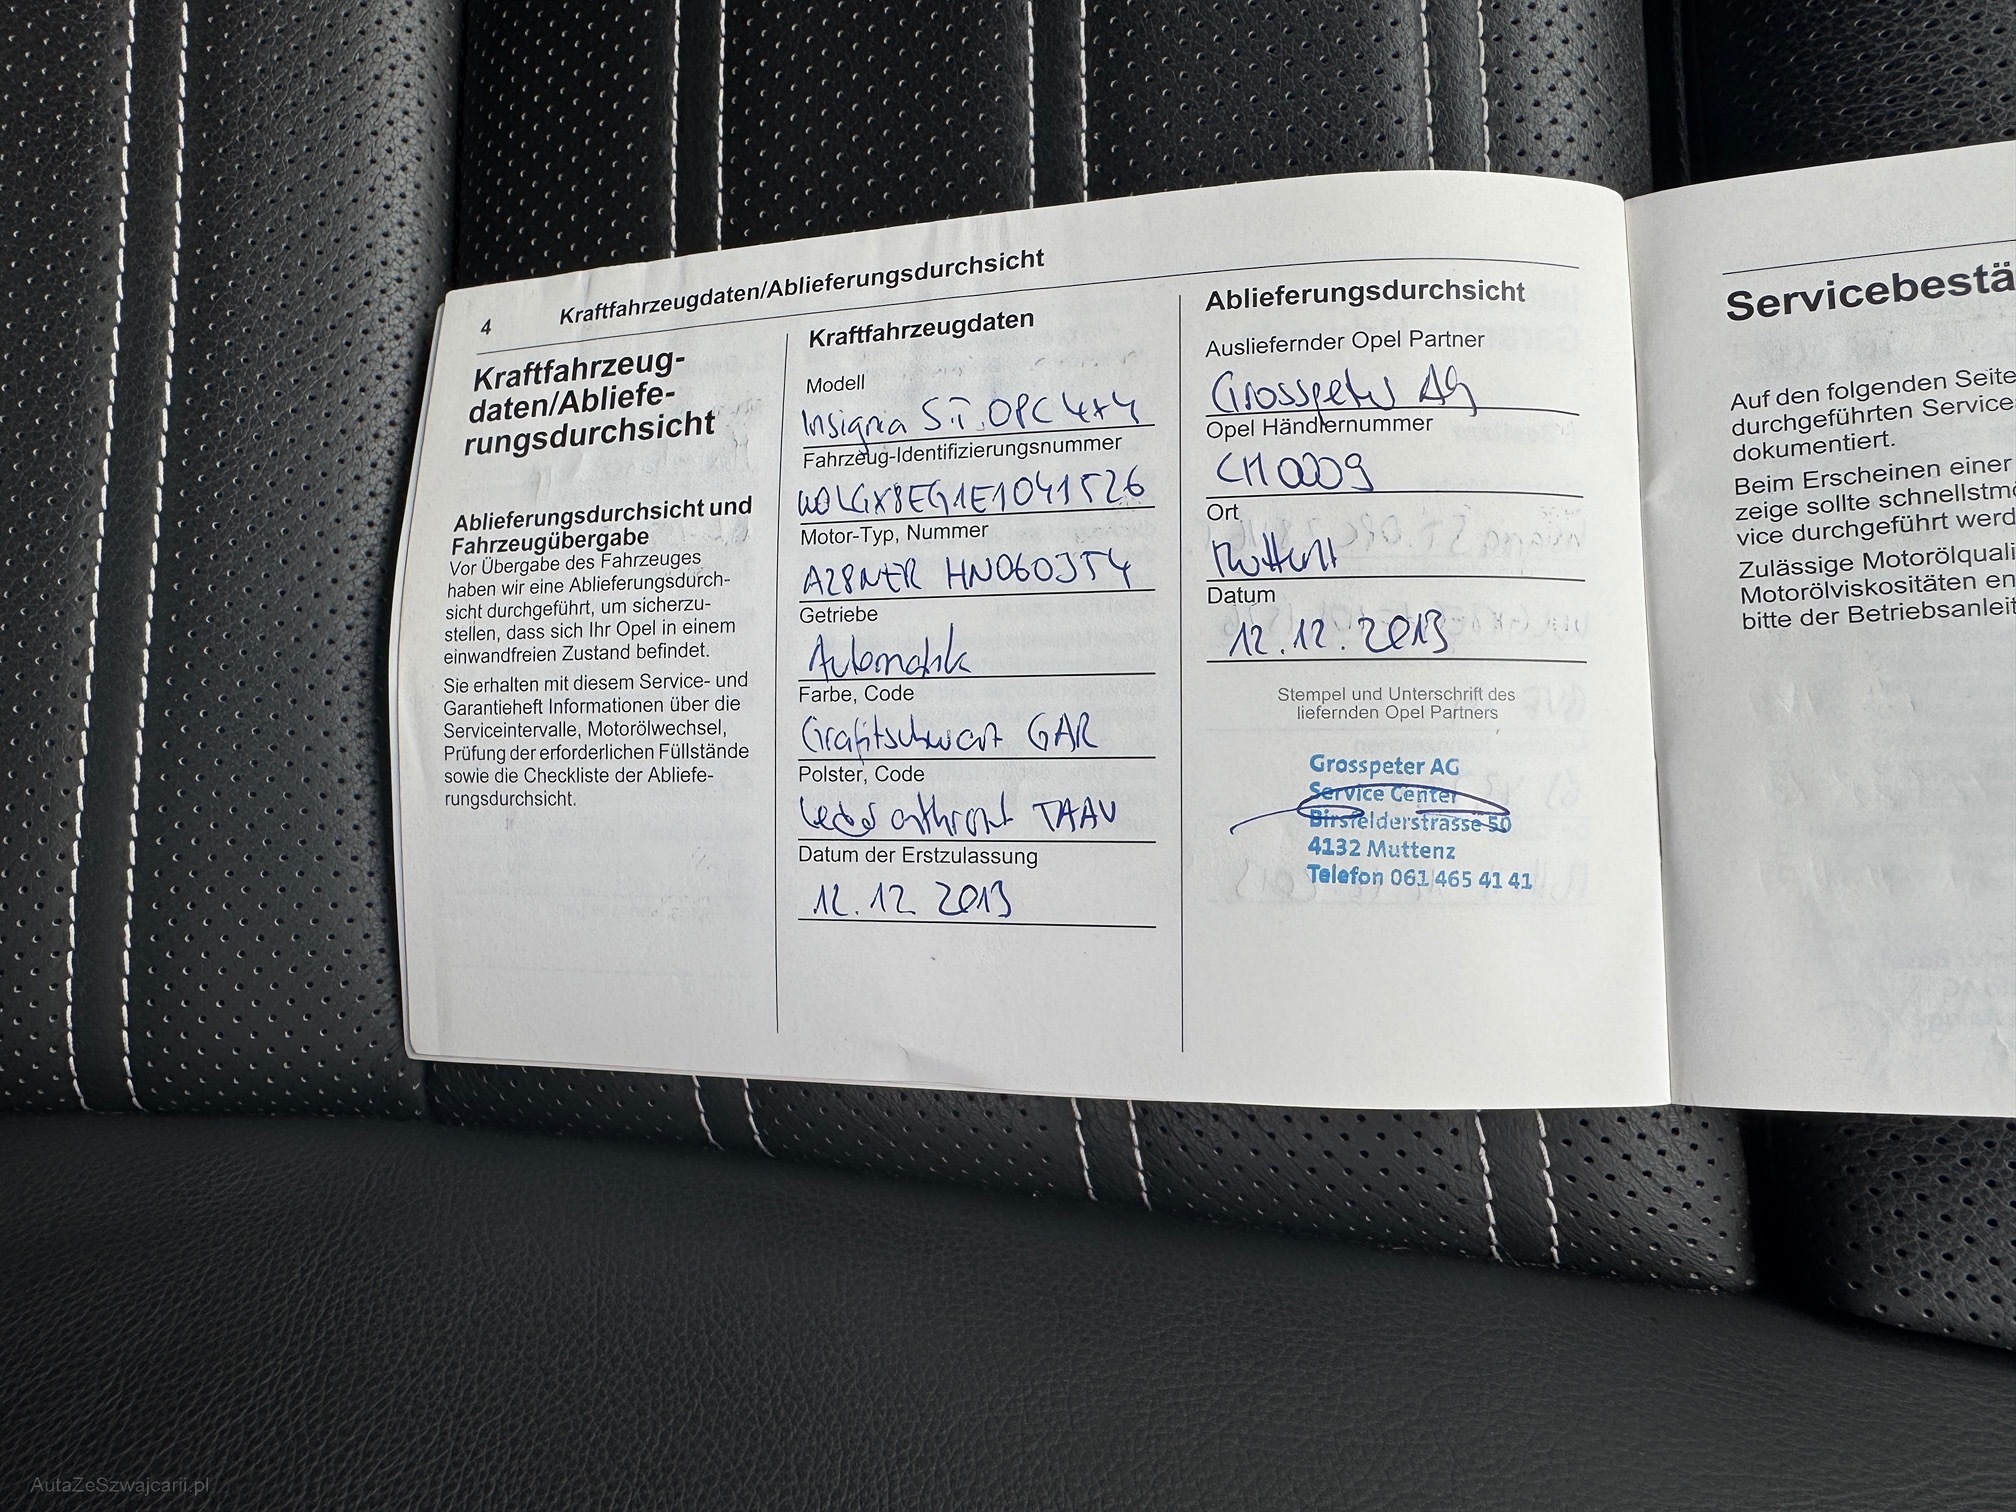 4 Kraftfahrzeugdaten/Ablieferungsdurchsicht
Kraftfahrzeug-
daten/Abliefe-
rungsdurchsicht
Ablieferungsdurchsicht und
Fahrzeugübergabe
Vor Übergabe des Fahrzeuges
haben wir eine Ablieferungsdurch-
sicht durchgeführt, um sicherzu-
stellen, dass sich Ihr Opel in einem
einwandfreien Zustand befindet.
Sie erhalten mit diesem Service- und
Garantieheft Informationen über die
Serviceintervalle, Motorölwechsel,
Prüfung der erforderlichen Füllstände
sowie die Checkliste der Abliefe-
rungsdurchsicht.
Kraftfahrzeugdaten
Modell
Insignia S.T. OPC 4x4
Fahrzeug-Identifizierungsnummer
W0LGX8EG1E1041526
Motor-Typ, Nummer
A28NER
Getriebe
Automatik
Farbe, Code
Grafitschwarz GAR
Polster, Code
Leder anthrazit TAAV
Datum der Erstzulassung
12.12 2013
Ablieferungsdurchsicht
Ausliefernder Opel Partner
Grosspeter AG
Opel Händlernummer
CH0009
Ort
Muttenz
Datum
12.12.2013
Stempel und Unterschrift des
liefernden Opel Partners
Grosspeter AG
Service Center
Birsfelderstrasse 50
4132 Muttenz
Telefon 061 465 41 41
Servicebestä
Auf den folgenden Seite
durchgeführten Service
dokumentiert.
Beim Erscheinen einer
zeige sollte schnellstmö
vice durchgeführt werd
Zulässige Motorölquali
Motorölviskositäten en
bitte der Betriebsanleit
AutaZeSzwajcarii.pl